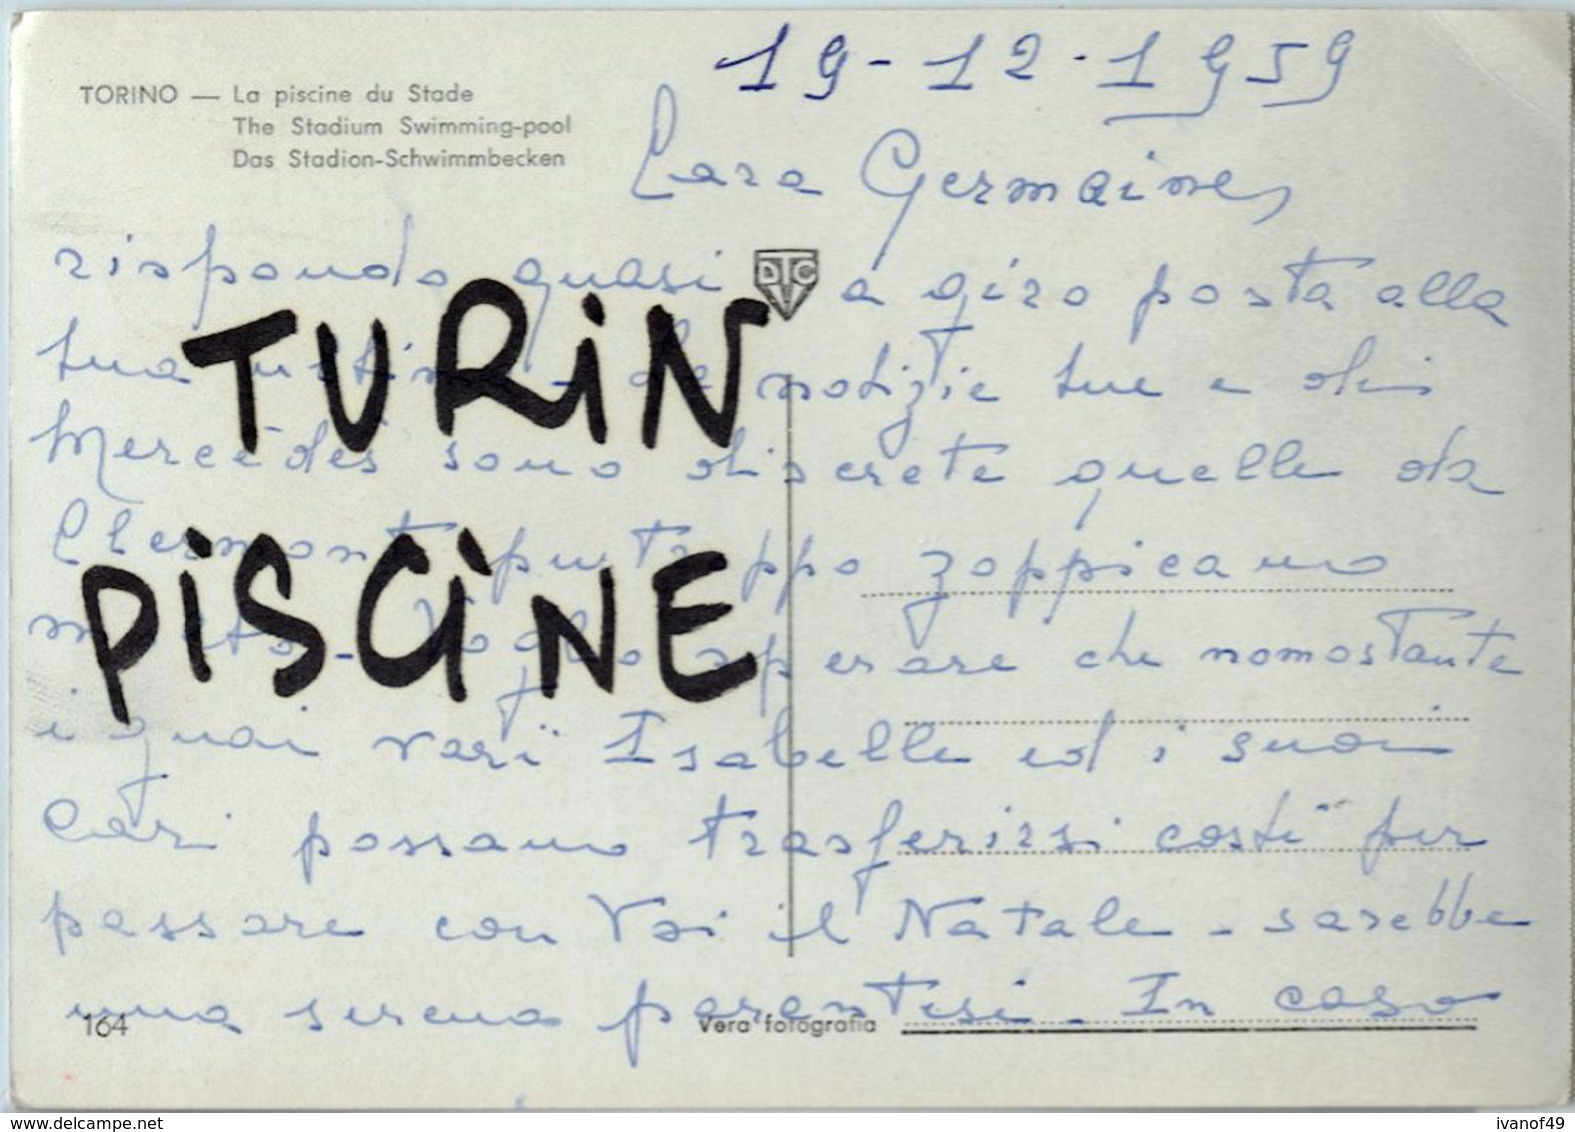 19-12-1959
TORINO — La piscine du Stade
The Stadium Swimming-pool
Das Stadion-Schwimmbecken
Cara Germaine,
rispondo quasi a giro posta alla
DTC
tua ultima - le notizie tue e di
TURIN
Mercédès sono discrete quelle da
Clermont purtroppo zoppicano
PISCINE
molto - Voglio sperare che nonostante
i guai vari Isabelle ed i suoi
cari possano trasferirsi costì per
passare con Voi il Natale - sarebbe
una serena parentesi - In caso
164
Vera fotografia
delcampe.net
ivanof49